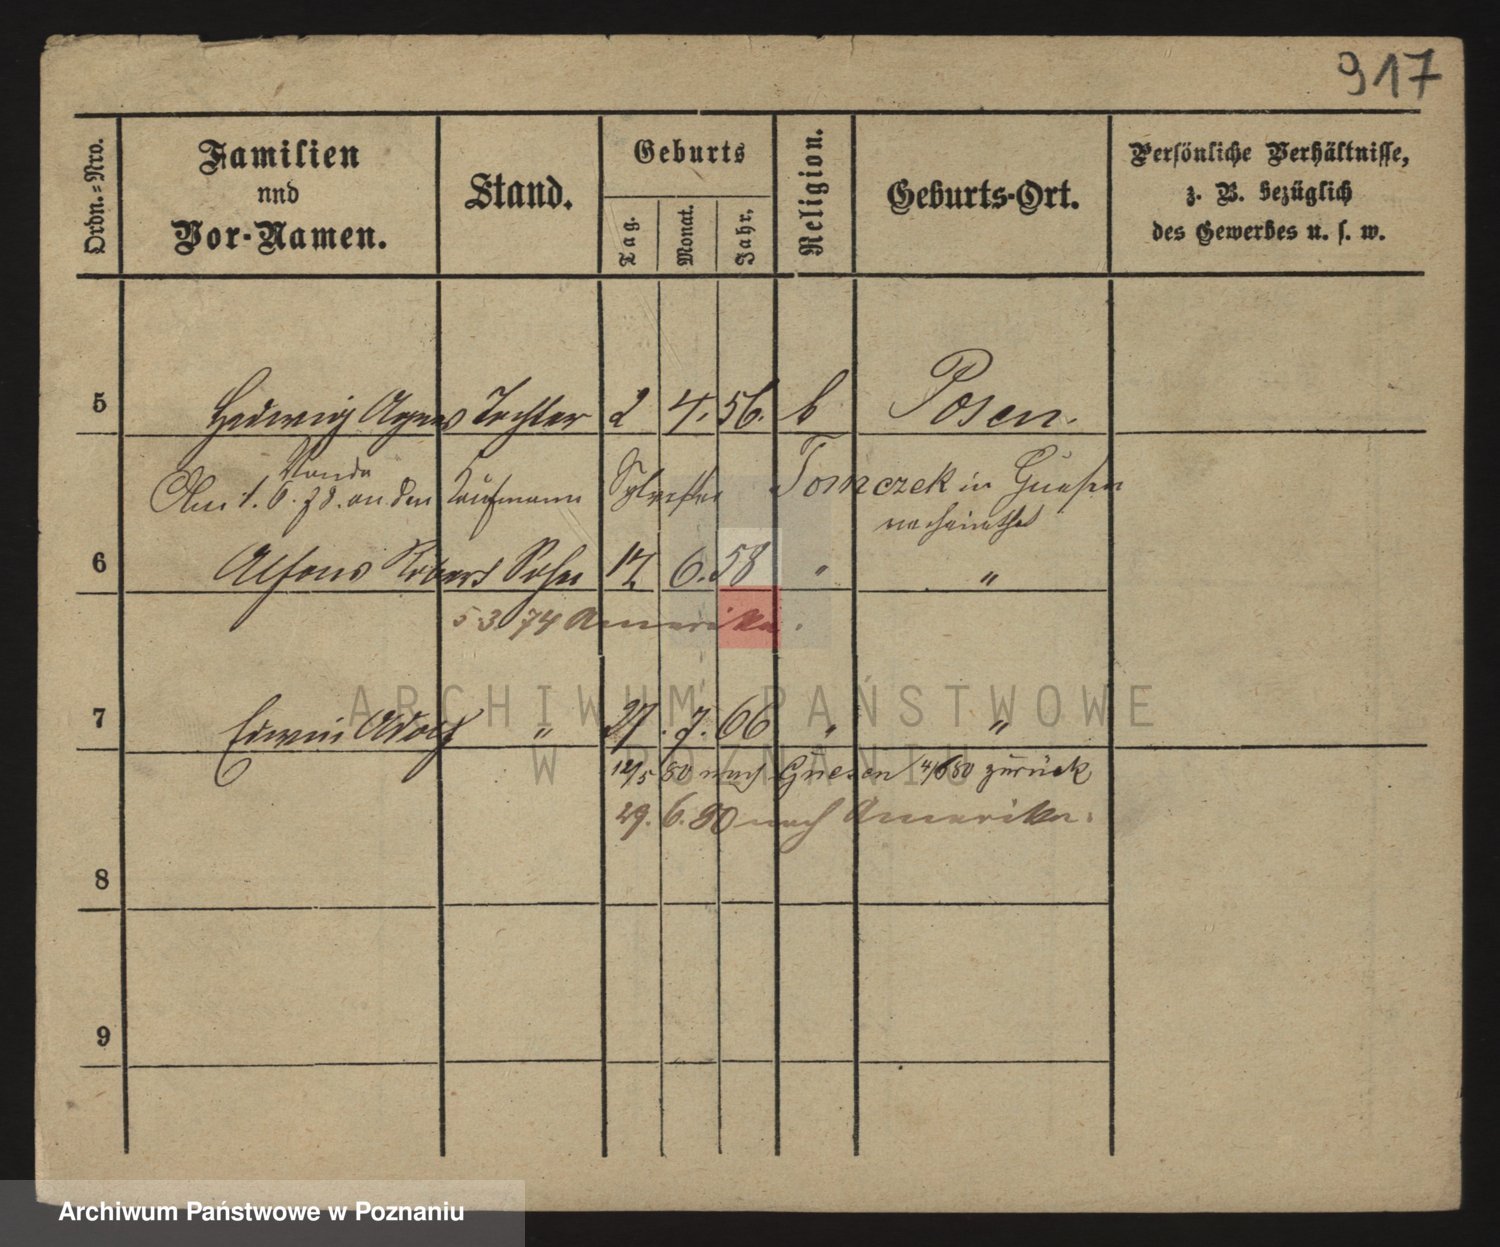 917
Ordn.-Nro.
Familien
und
Vor-Namen.
Stand.
Geburts
Tag.
Monat.
Jahr.
Religion.
Geburts-Ort.
Persönliche Verhältnisse,
z. B. bezüglich
des Gewerbes u. s. w.
5 Hedwig Agnes Tochter 2 4. 56. k Posen.
Wanda
Am 1. 6. 78. an den Kaufmann Sylvester Tomczek in Gnesen
verheirathet
6 Alfons Robert Sohn 14 6. 58 " "
5 3 74 Amerika.
7 Edwin Adolf " 27. 7. 66 " "
12/5 80 nach Gnesen 4/6 80 zurück
29. 6. 80 nach Amerika.
8
9
ARCHIWUM PAŃSTWOWE
W POZNANIU
Archiwum Państwowe w Poznaniu